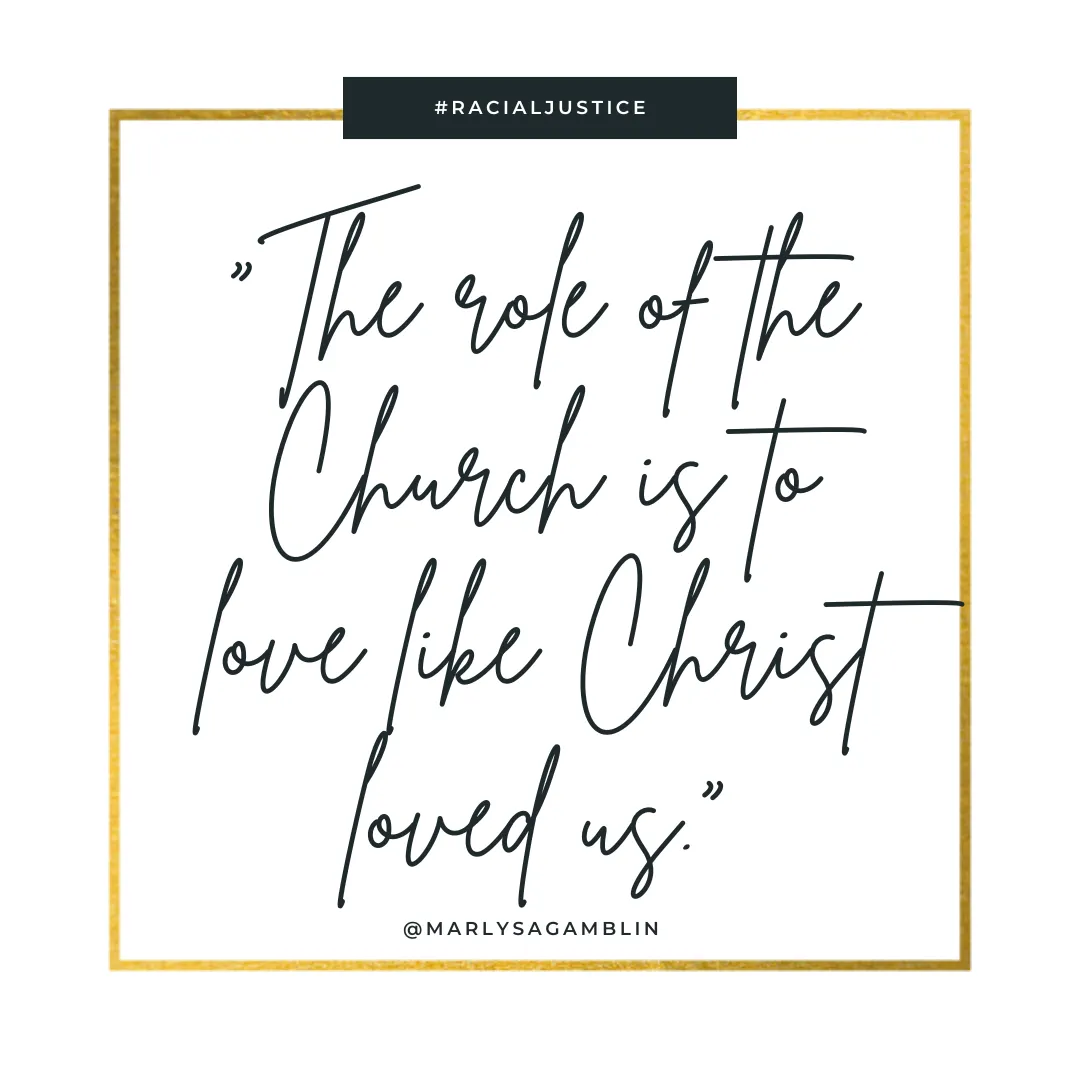 #RACIALJUSTICE
”The role of the
Church is to
love like Christ
loved us.”
@MARLYSAGAMBLIN